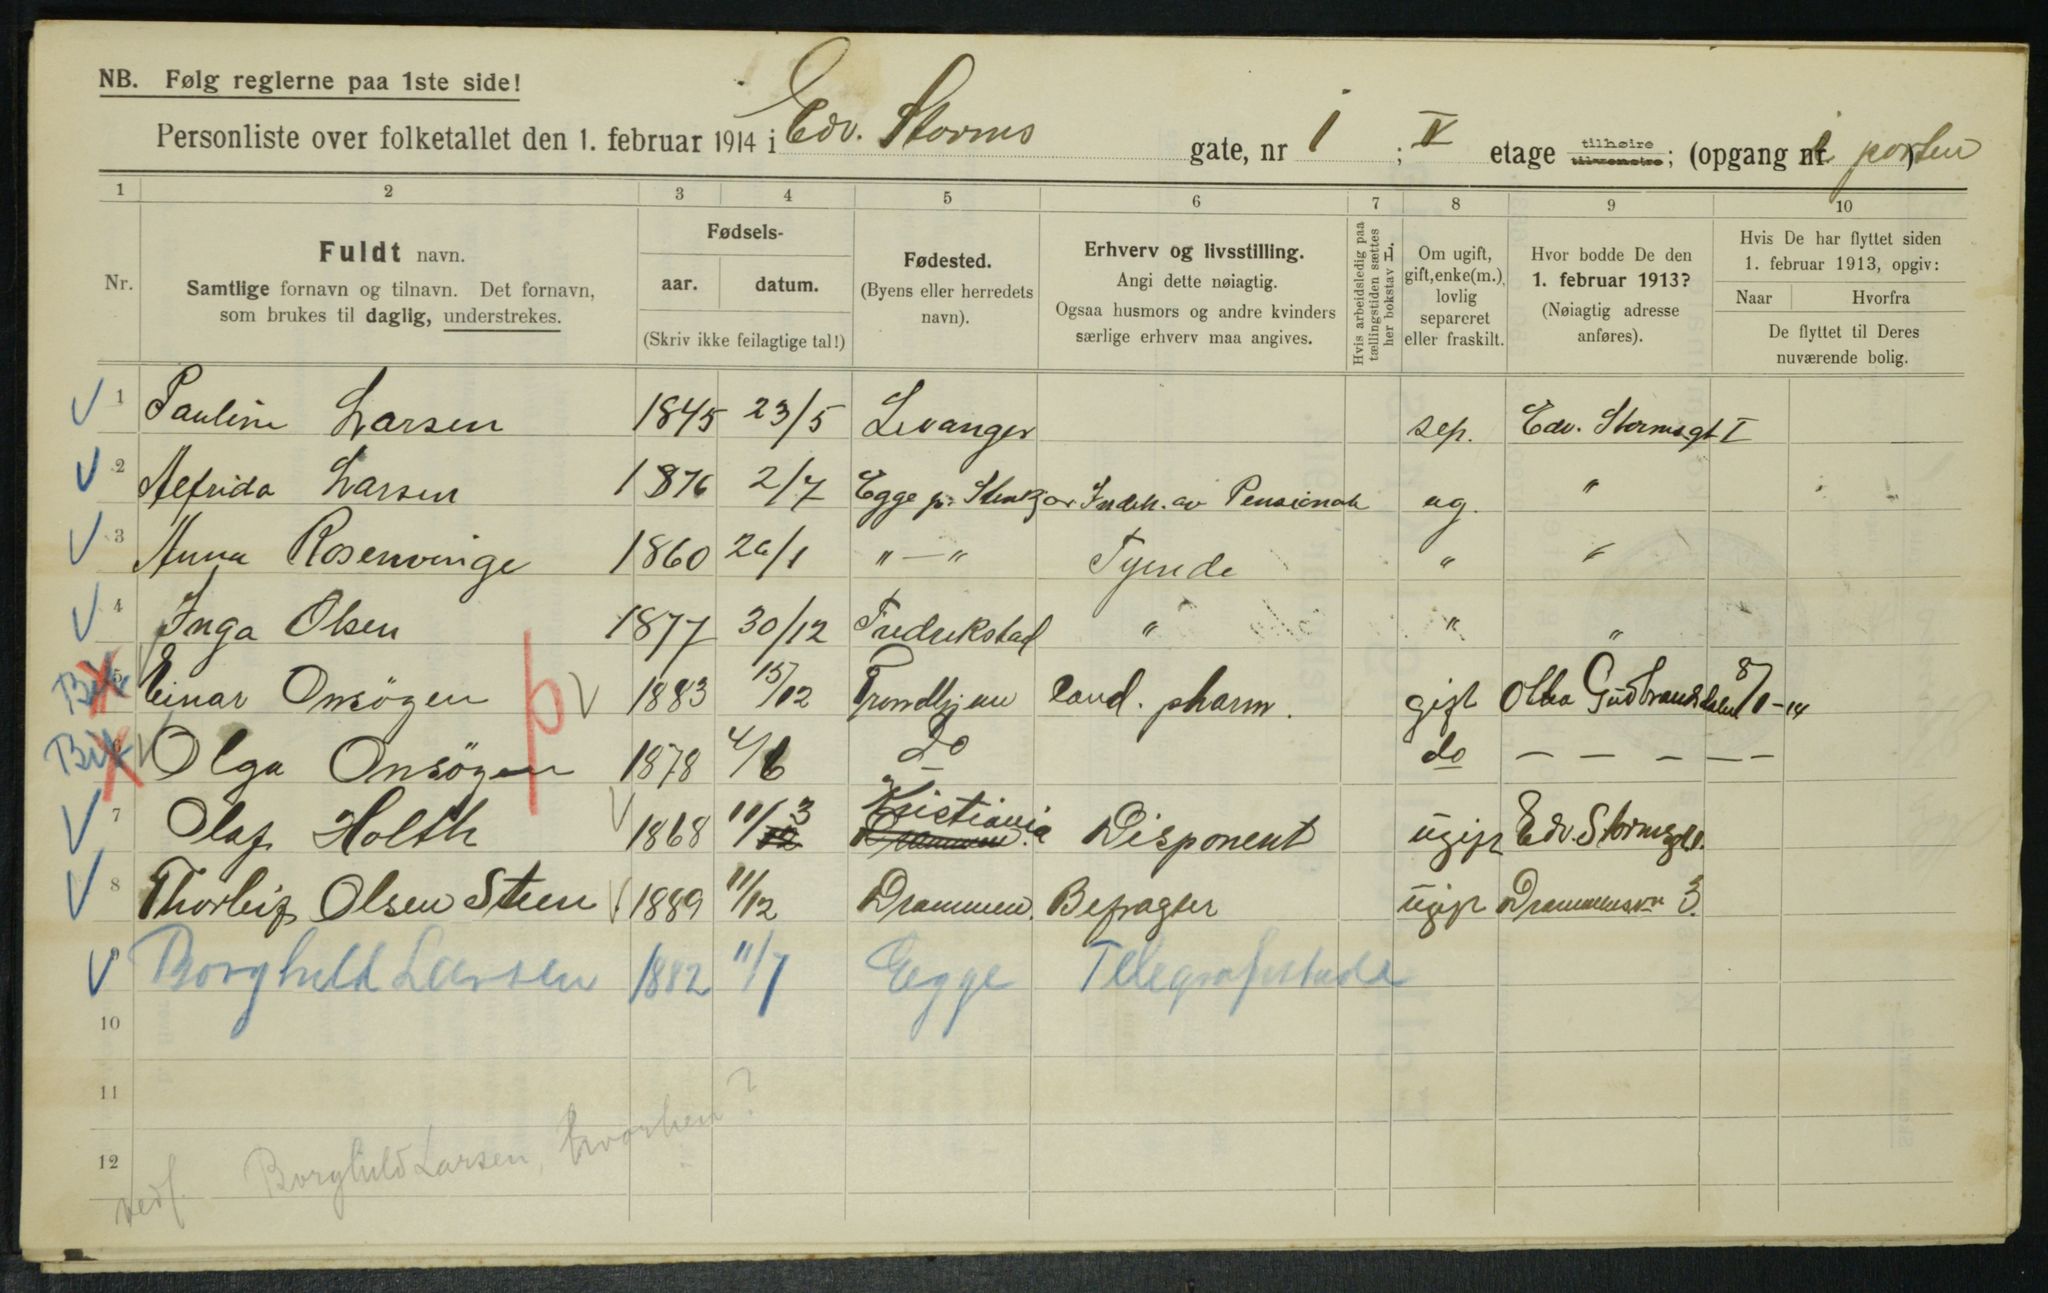 NB. Følg reglerne paa 1ste side!
Personliste over folketallet den 1. februar 1914 i Edv. Storms gate, nr 1 ; V etage tilhøire tilvenstre; (opgang nr. i porten)
1 2 3 4 5 6 7 8 9 10
Nr.
Fuldt navn.
Samtlige fornavn og tilnavn. Det fornavn,
som brukes til daglig, understrekes.
Fødsels-
aar. datum.
(Skriv ikke feilagtige tal!)
Fødested.
(Byens eller herredets
navn).
Erhverv og livsstilling.
Angi dette nøiagtig.
Ogsaa husmors og andre kvinders
særlige erhverv maa angives.
Hvis arbeidsledig paa
tællingstiden sættes
her bokstav L.
Om ugift,
gift, enke(m.),
lovlig
separeret
eller fraskilt.
Hvor bodde De den
1. februar 1913?
(Nøiagtig adresse
anføres).
Hvis De har flyttet siden
1. februar 1913, opgiv:
Naar Hvorfra
De flyttet til Deres
nuværende bolig.
1 Pauline Larsen 1845 23/5 Levanger sep. Edv. Stormsgt I
2 Alfrida Larsen 1876 2/7 Egge pr. Stenkjær Indeh. av Pensionat ug. "
3 Anna Rosenvinge 1860 26/1 " — " Tjende " "
4 Inga Olsen 1877 30/12 Fredrikstad " " "
5 Einar Onsögen 1883 15/12 Trondhjem cand. pharm. gift Otta Gudbrandsdalen 8/1-14
6 Olga Onsögen 1878 4/6 do do — — — — —
7 Olaf Holth 1868 11/3 Kristiania Disponent ugift Edv. Stormsgt 1.
8 Thorleif Olsen Steen 1889 11/12 Drammen. Befragter ugift Drammensvn 3.
9 Borghild Larsen 1882 11/7 Egge Telegrafistinde
10
11
12
vedf. Borghild Larsen, hvorhen?